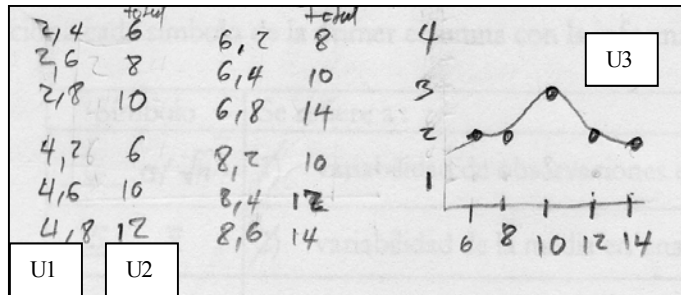 total
2,4 6
2,6 8
2,8 10
4,2 6
4,6 10
4,8 12
U1 U2
total
6,2 8
6,4 10
6,8 14
8,2 10
8,4 12
8,6 14
U3
4
3
2
1
6 8 10 12 14